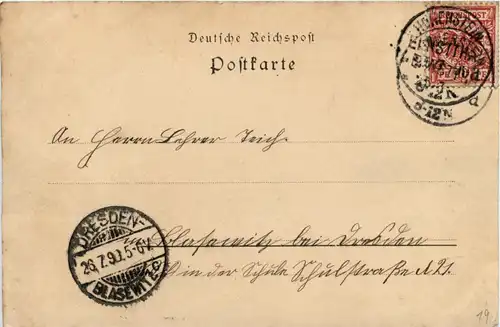 Deutsche Reichspost
Postkarte
HOHENSTEIN
8-12N
An Herrn Lehrer Teich
DRESDEN-
26.7.9 5-6V.
BLASEWITZ
Blasewitz bei Dresden
in der Schule Schulstraße
19